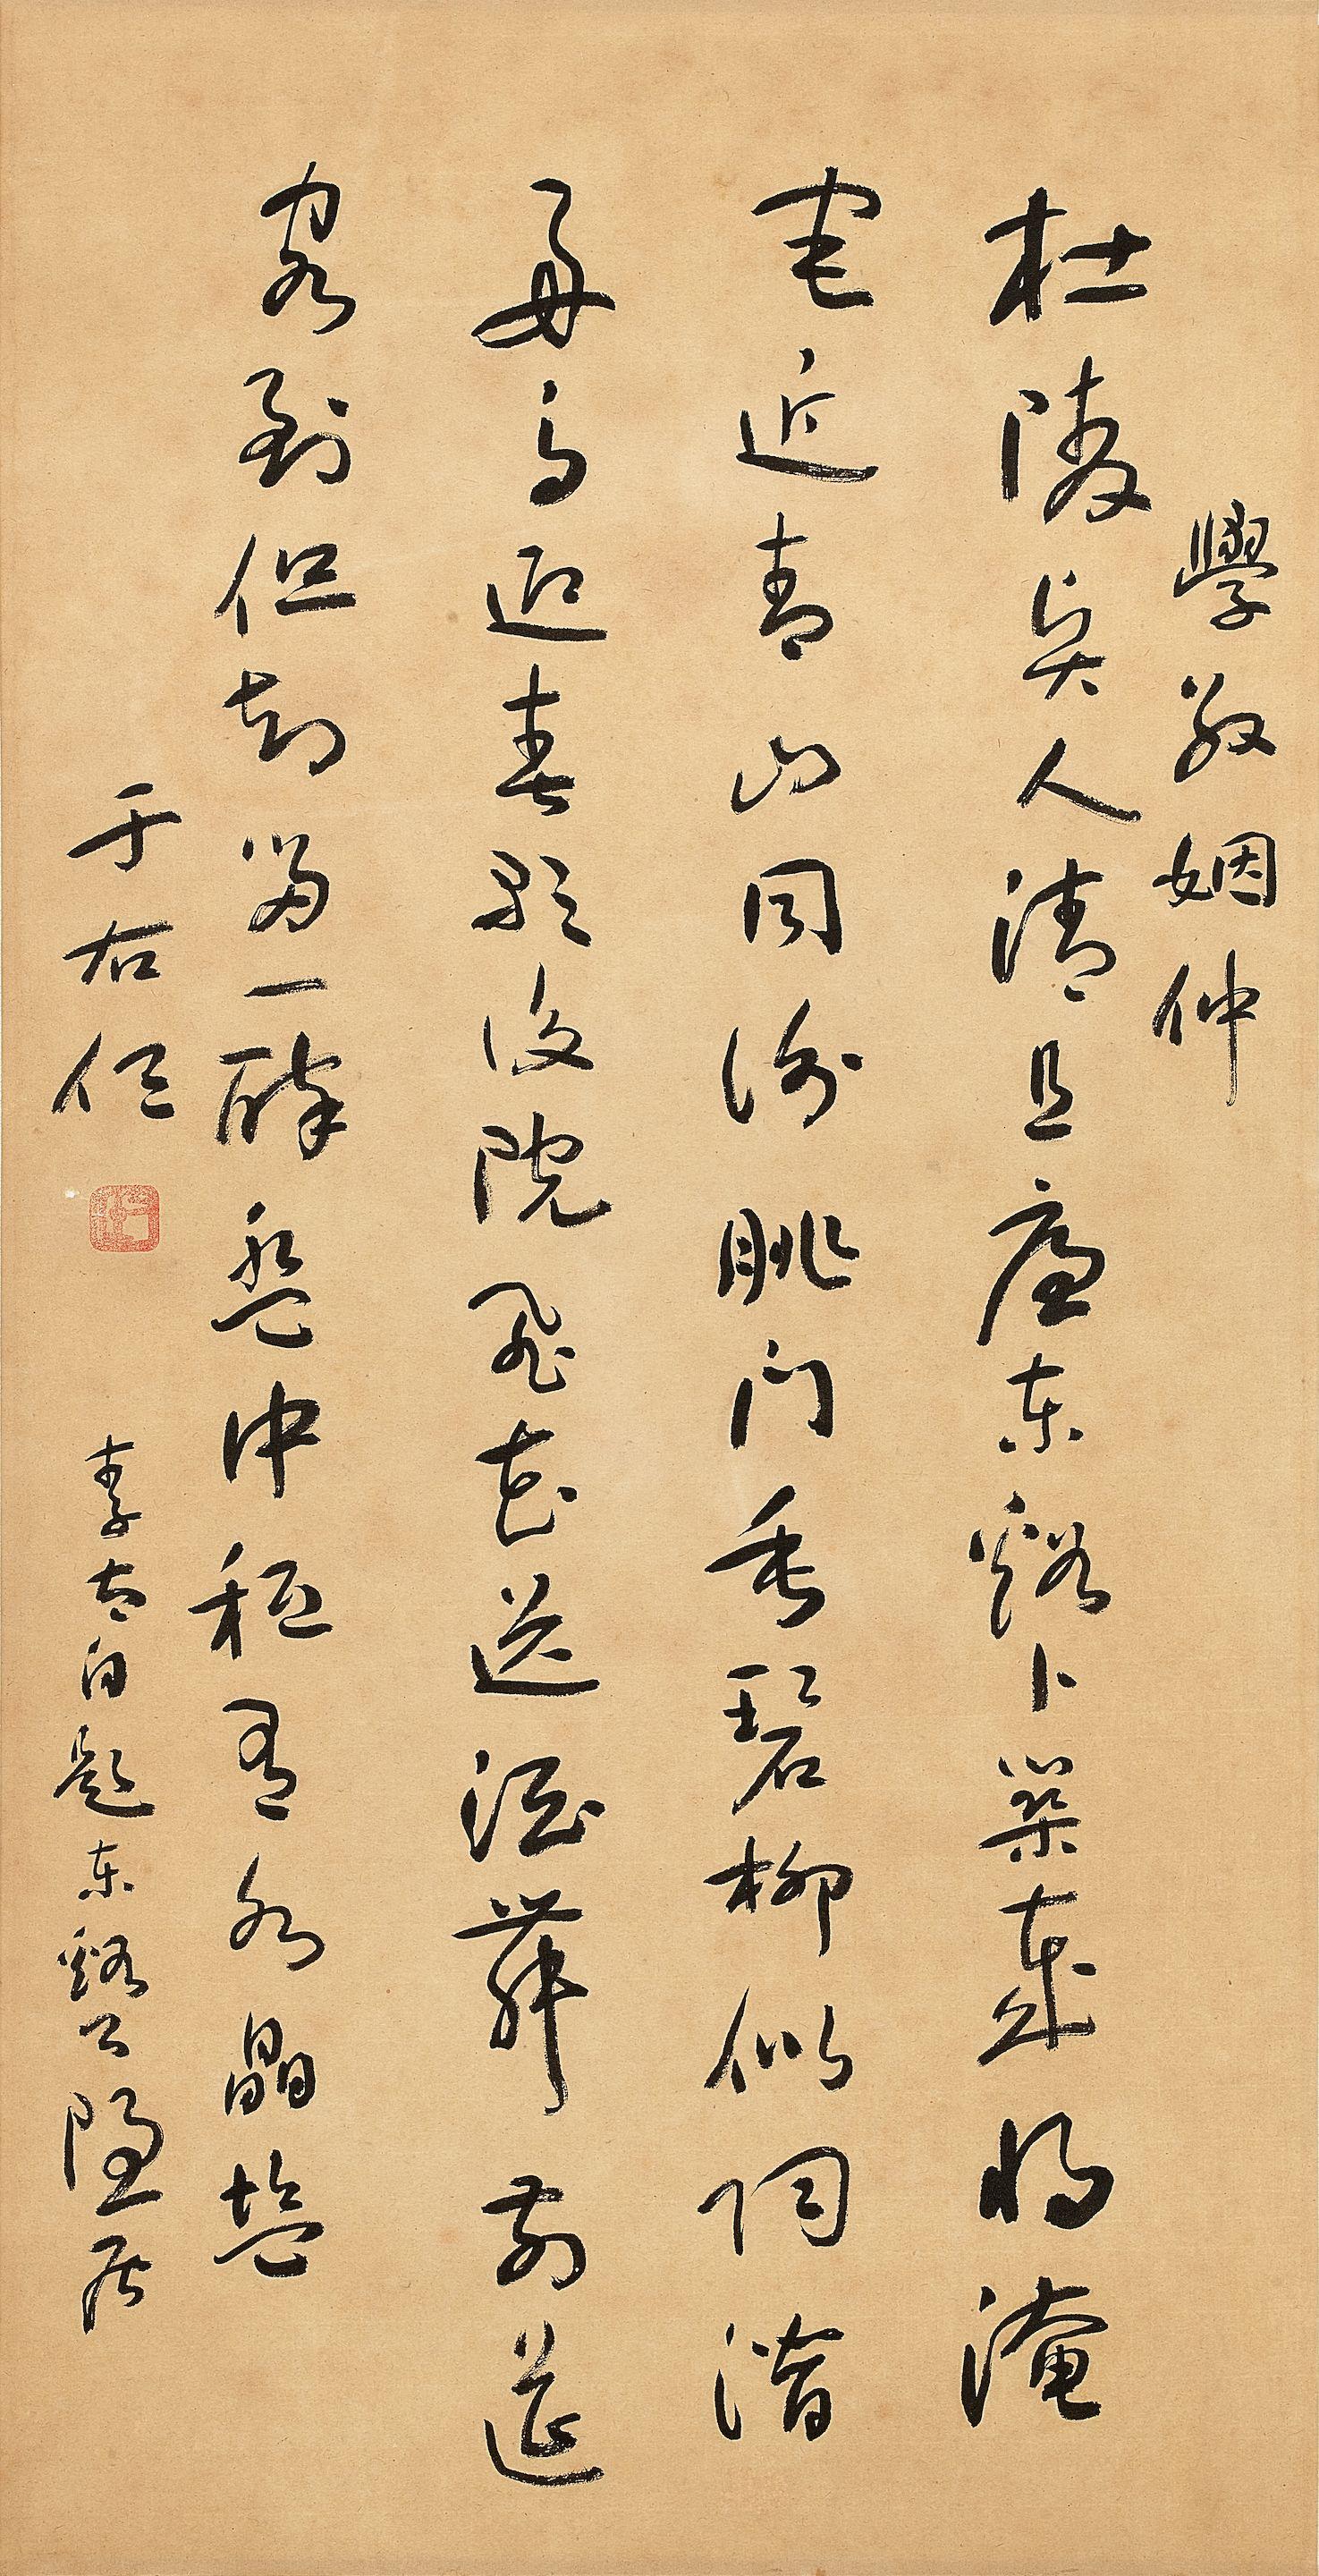 學敬姻仲
杜陵賢人清且廉東谿卜築歲將淹
宅近青山同謝眺門垂碧柳似陶潛
好鳥迎春歌後院飛花送酒舞前筵
客到但知留一醉盤中秖有水晶鹽
于右任
李太白題東谿公隱居